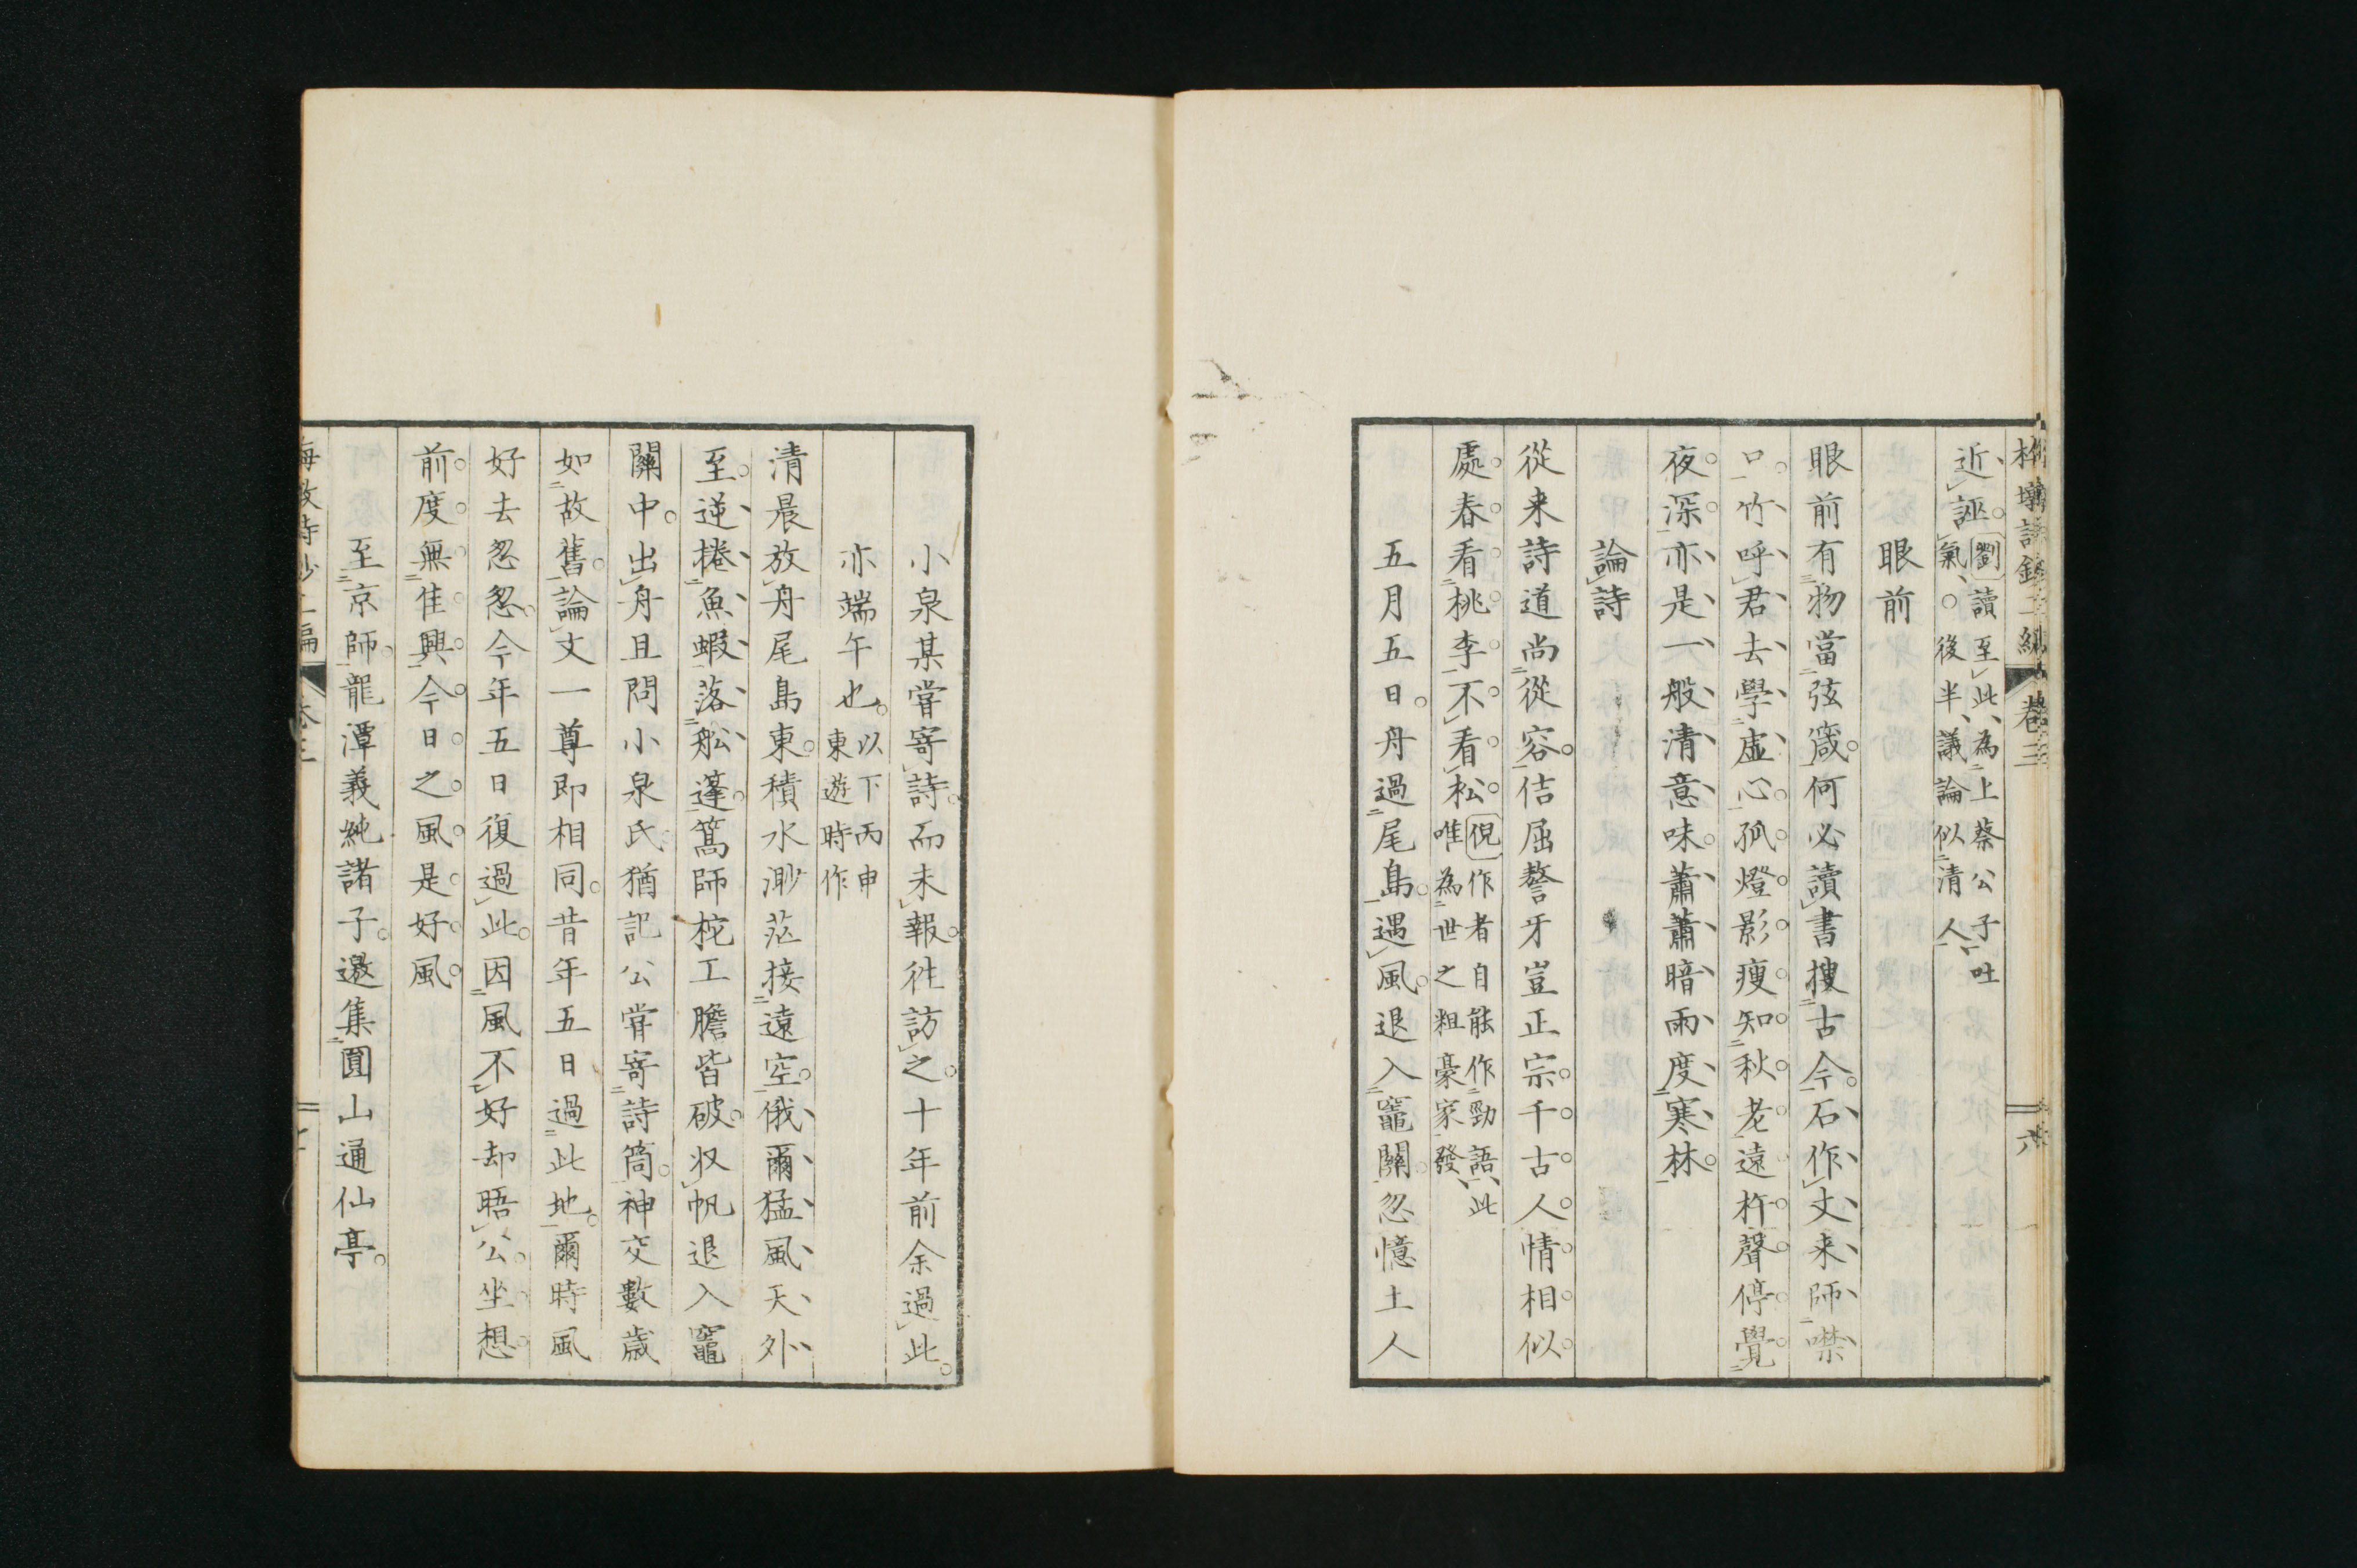 近誣劉讀至此為上蔡公子吐
氣○後半議論似清人
眼前
眼前有物當弦箴何必讀書搜古今石作丈来師噤
口竹呼君去學虛心孤燈影瘦知秋老遠杵聲停覺
夜深亦是一般清意味蕭蕭暗雨度寒林
論詩
從来詩道尚從容佶屈謷牙豈正宗千古人情相似
處春看桃李不看松倪作者自能作勁語此
唯為世之粗豪家發
五月五日舟過尾島遇風退入竈關忽憶土人
小泉某嘗寄詩而未報往訪之十年前余過此
亦端午也以下丙申
東遊時作
清晨放舟尾島東積水渺茫接遠空俄爾猛風天外
至逆捲魚蝦落舩蓬篙師柁工膽皆破収帆退入竈
關中出舟且問小泉氏猶記公嘗寄詩筒神交數歳
如故舊論文一尊即相同昔年五日過此地爾時風
好去忽忽今年五日復過此因風不好却晤公坐想
前度無佳興今日之風是好風
至京師龍潭義純諸子邀集圓山通仙亭
卷三
六